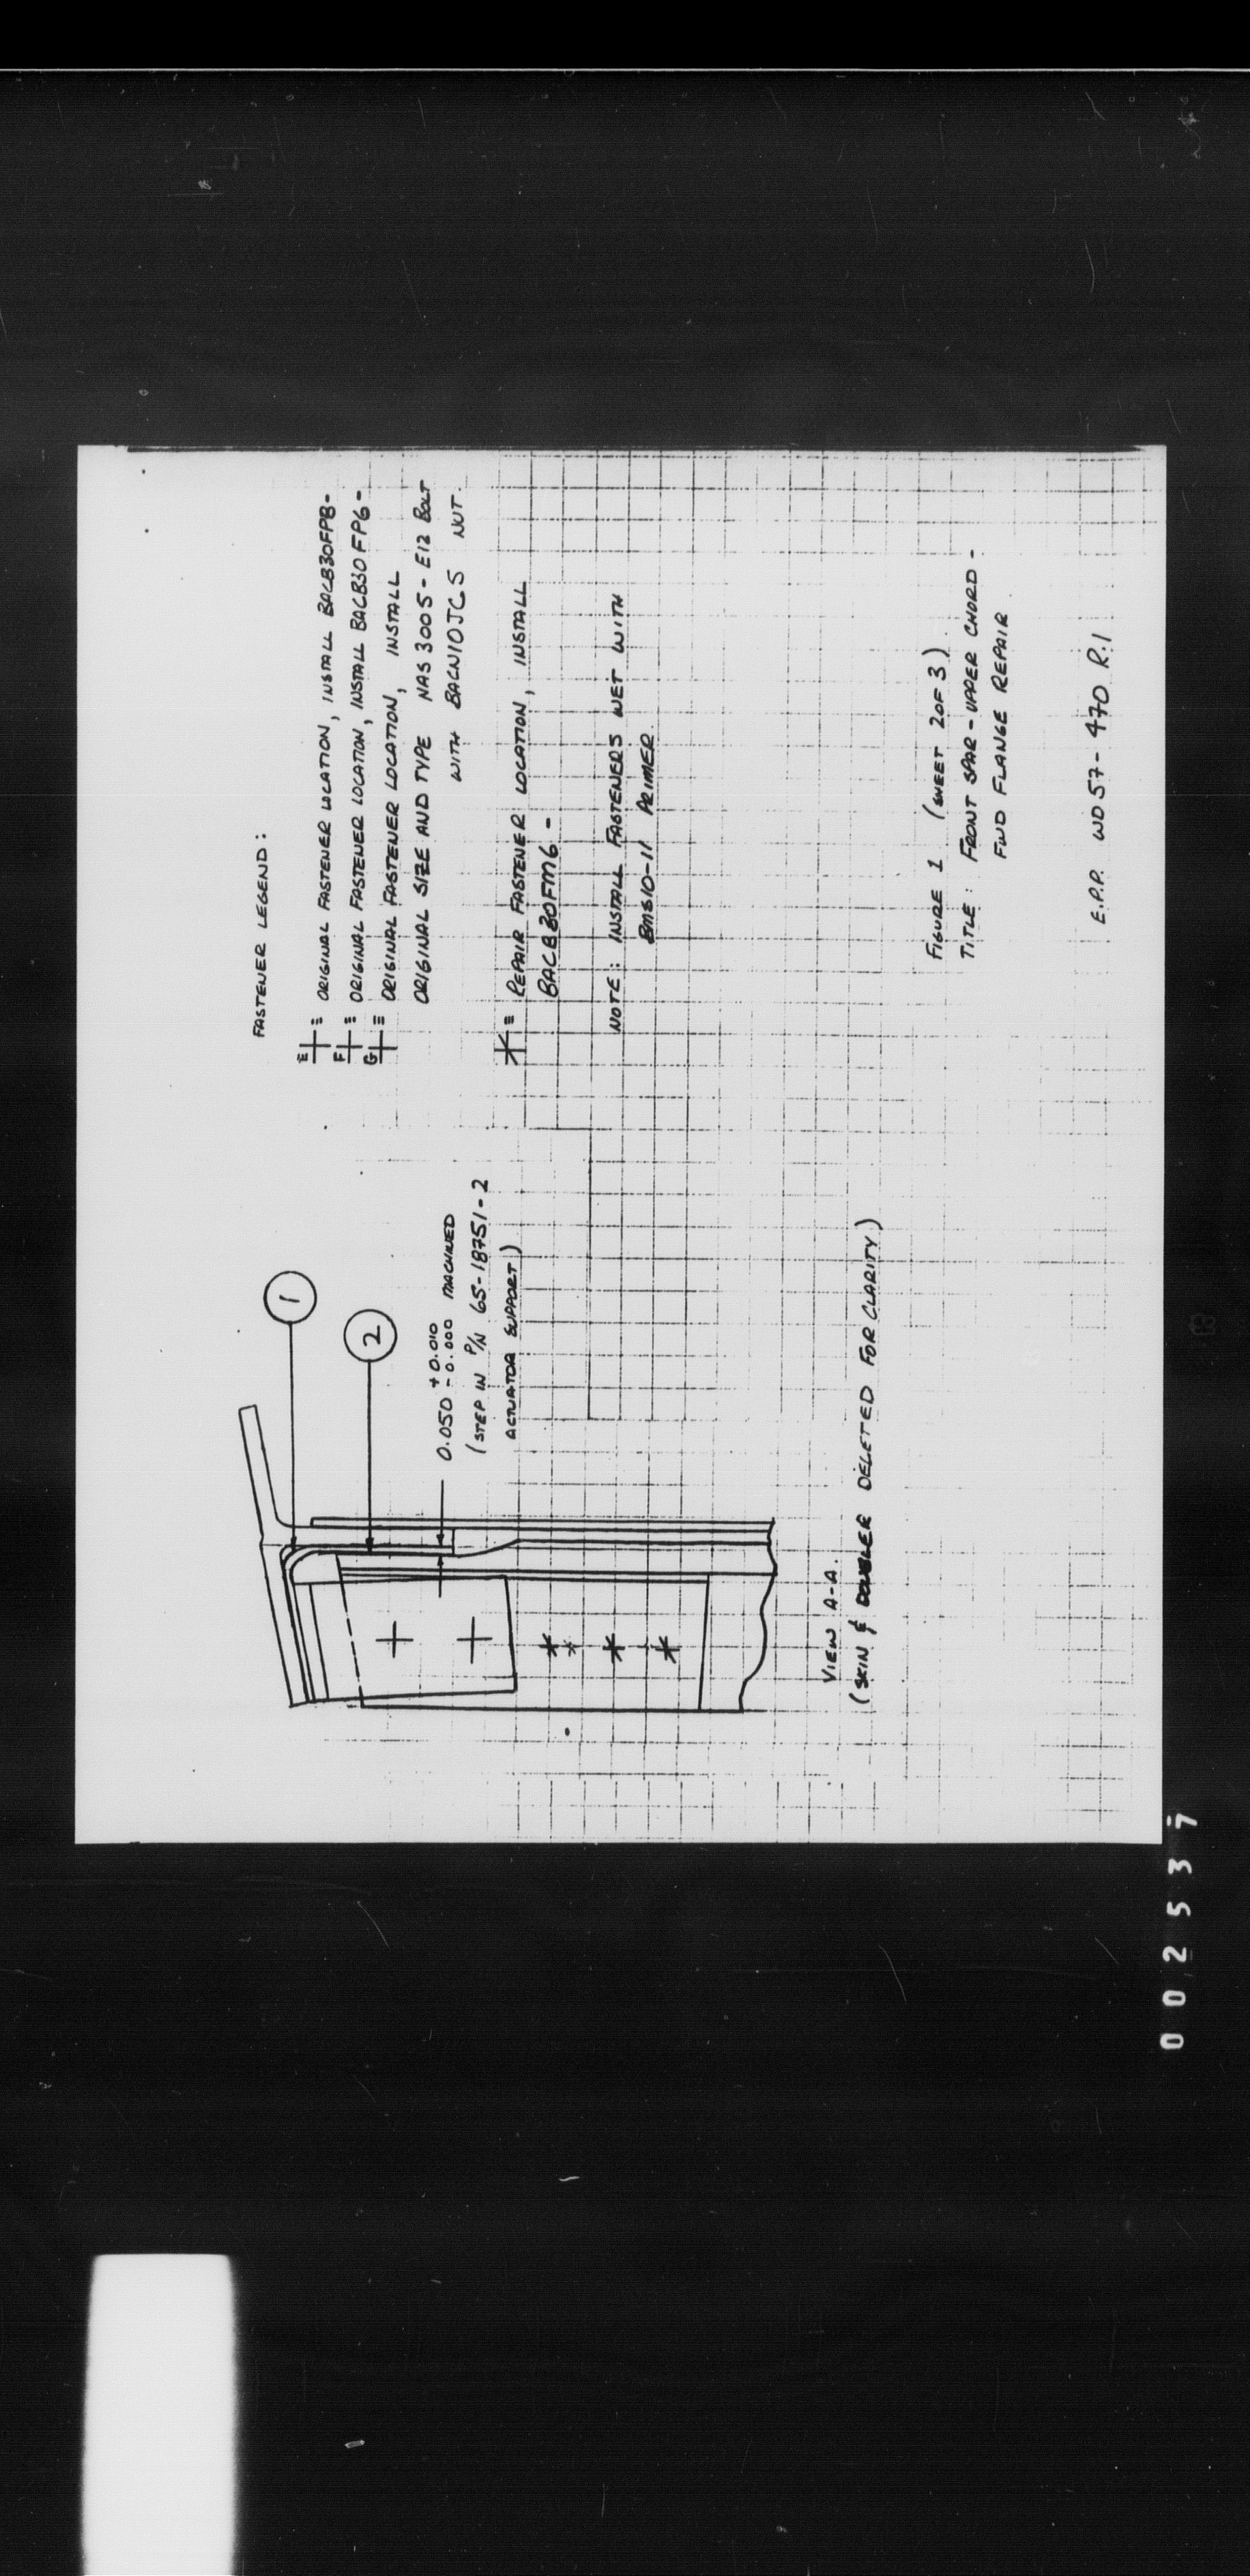 FASTENER LEGEND:
E ≡ ORIGINAL FASTENER LOCATION, INSTALL BACB30FP8-
F ≡ ORIGINAL FASTENER LOCATION, INSTALL BACB30FP6-
G ≡ ORIGINAL FASTENER LOCATION, INSTALL
ORIGINAL SIZE AND TYPE NAS 3005-E12 BOLT
WITH BACN10JC5 NUT.
≡ REPAIR FASTENER LOCATION, INSTALL
BACB30FM6-
NOTE: INSTALL FASTENERS WET WITH
BMS10-11 PRIMER.
1
2
0.050 +0.010 -0.000 MACHINED
(STEP IN P/N 65-18751-2
ACTUATOR SUPPORT)
VIEW A-A.
(SKIN & DOUBLER DELETED FOR CLARITY)
FIGURE 1 (SHEET 2 OF 3).
TITLE: FRONT SPAR-UPPER CHORD-
FWD FLANGE REPAIR.
E.P.P. WD57-470 R.1
002537